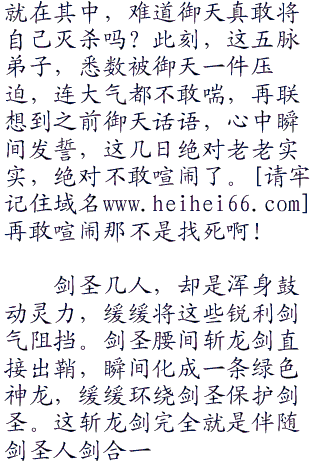 就在其中，难道御天真敢将
自己灭杀吗？此刻，这五脉
弟子，悉数被御天一件压
迫，连大气都不敢喘，再联
想到之前御天话语，心中瞬
间发誓，这几日绝对老老实
实，绝对不敢喧闹了。[请牢
记住域名www.heihei66.com]
再敢喧闹那不是找死啊！
　　剑圣几人，却是浑身鼓
动灵力，缓缓将这些锐利剑
气阻挡。剑圣腰间斩龙剑直
接出鞘，瞬间化成一条绿色
神龙，缓缓环绕剑圣保护剑
圣。这斩龙剑完全就是伴随
剑圣人剑合一